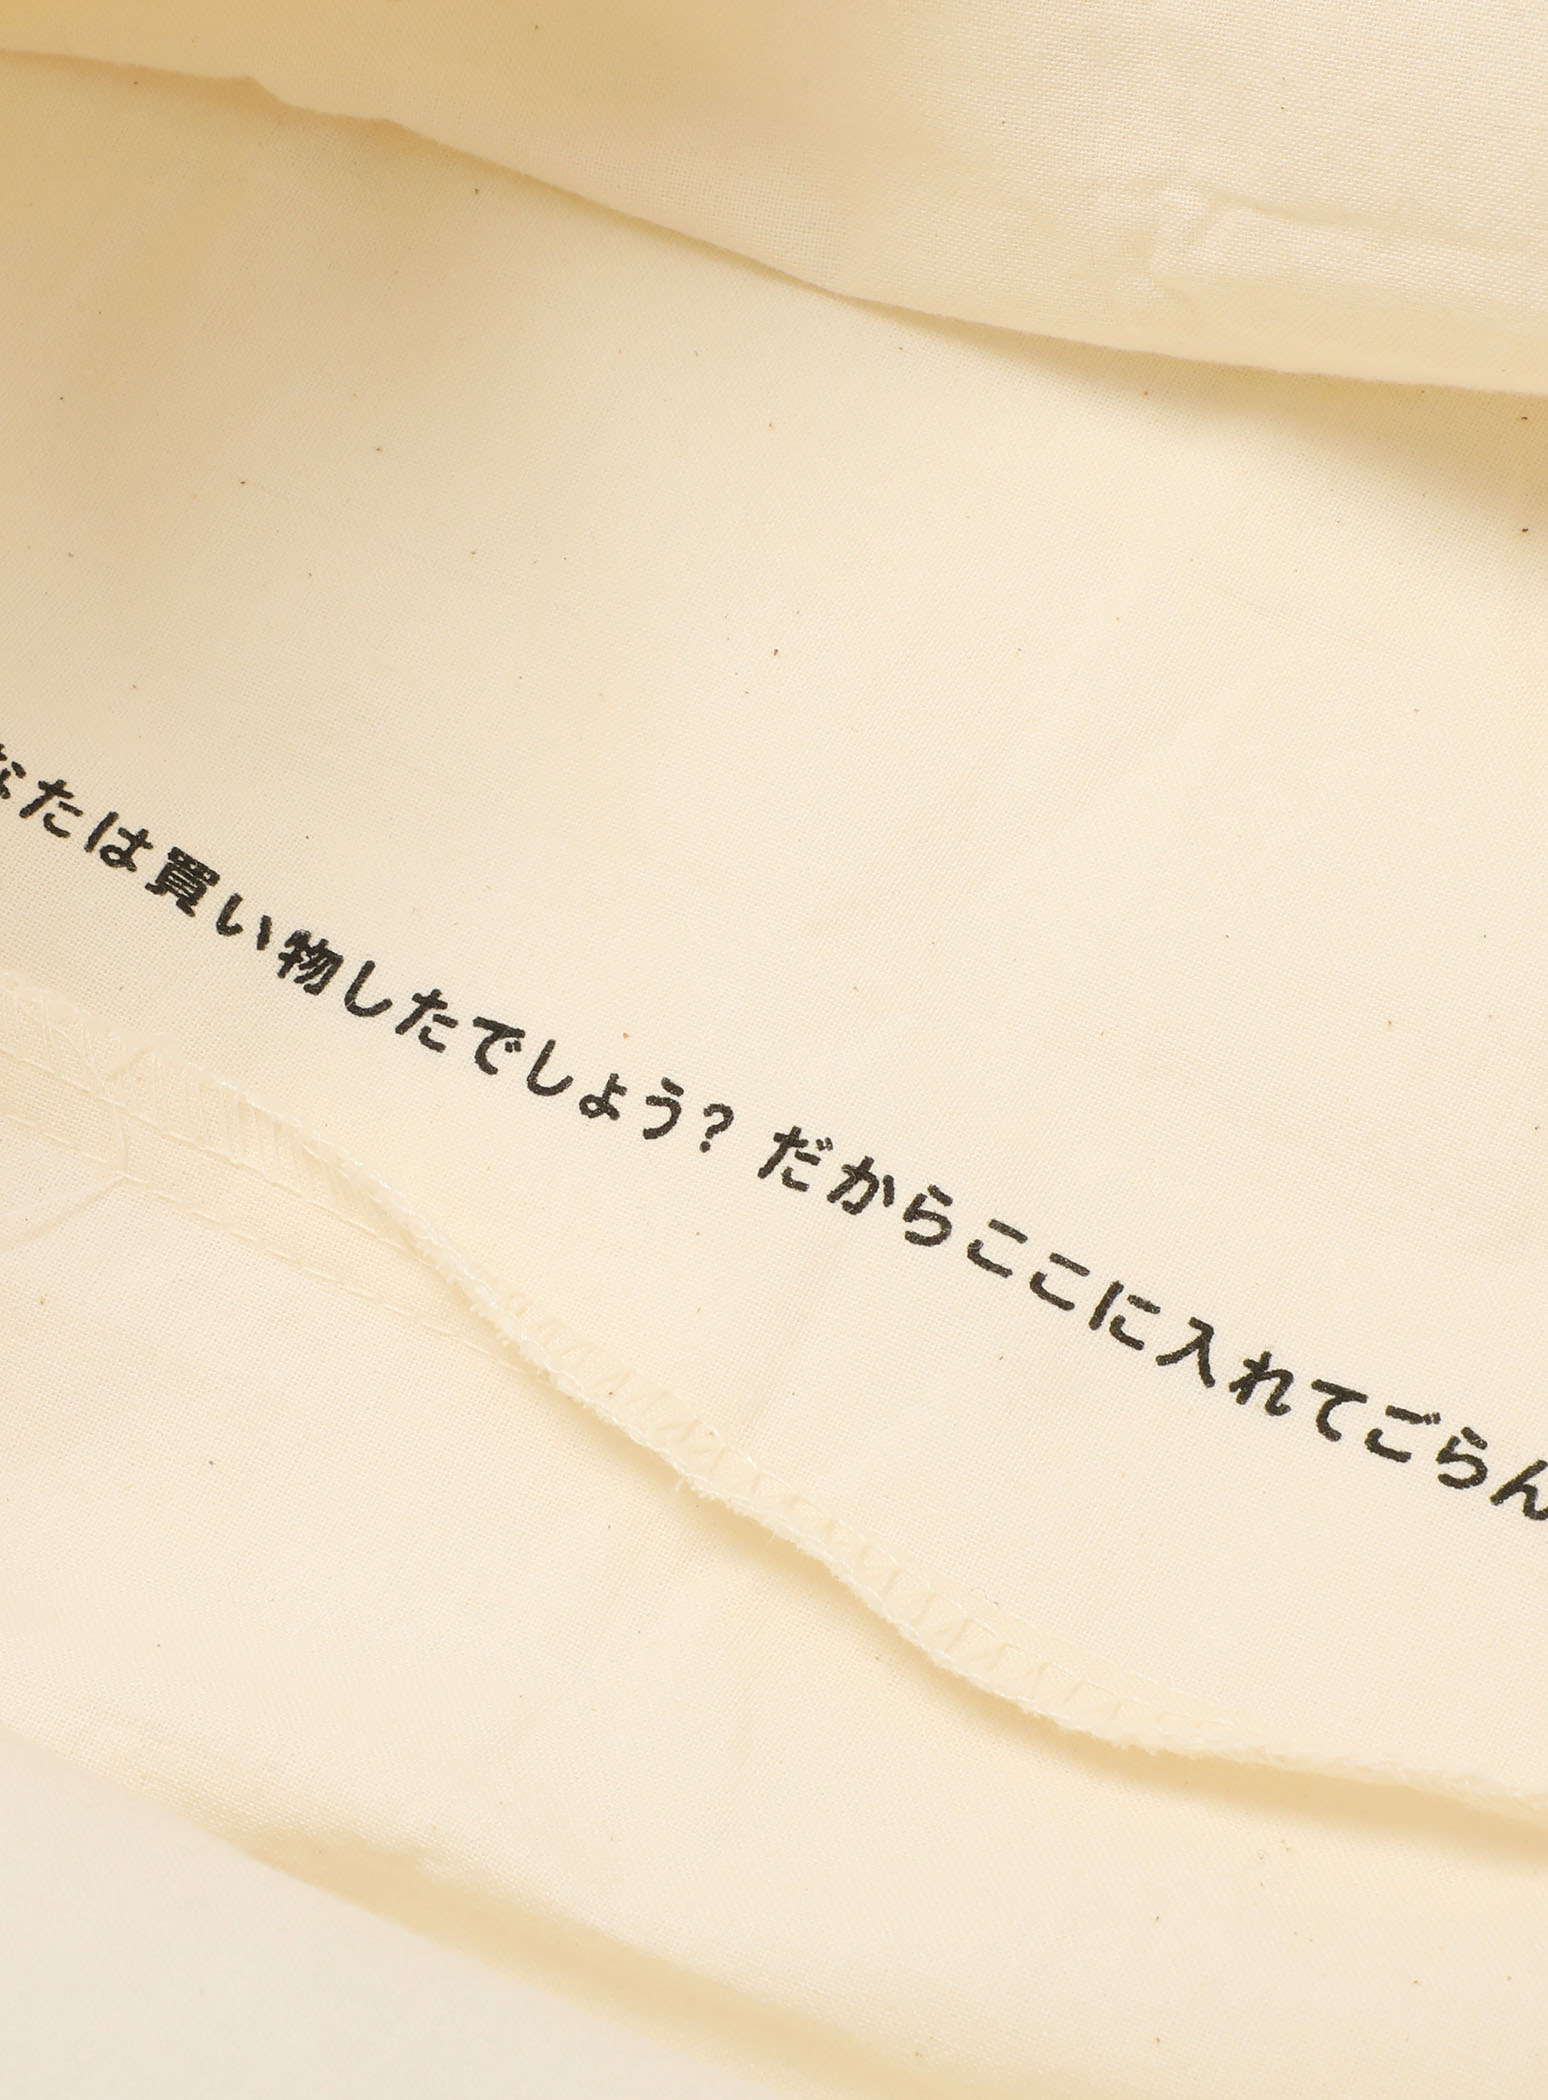 なたは買い物したでしょう? だからここに入れてごらん